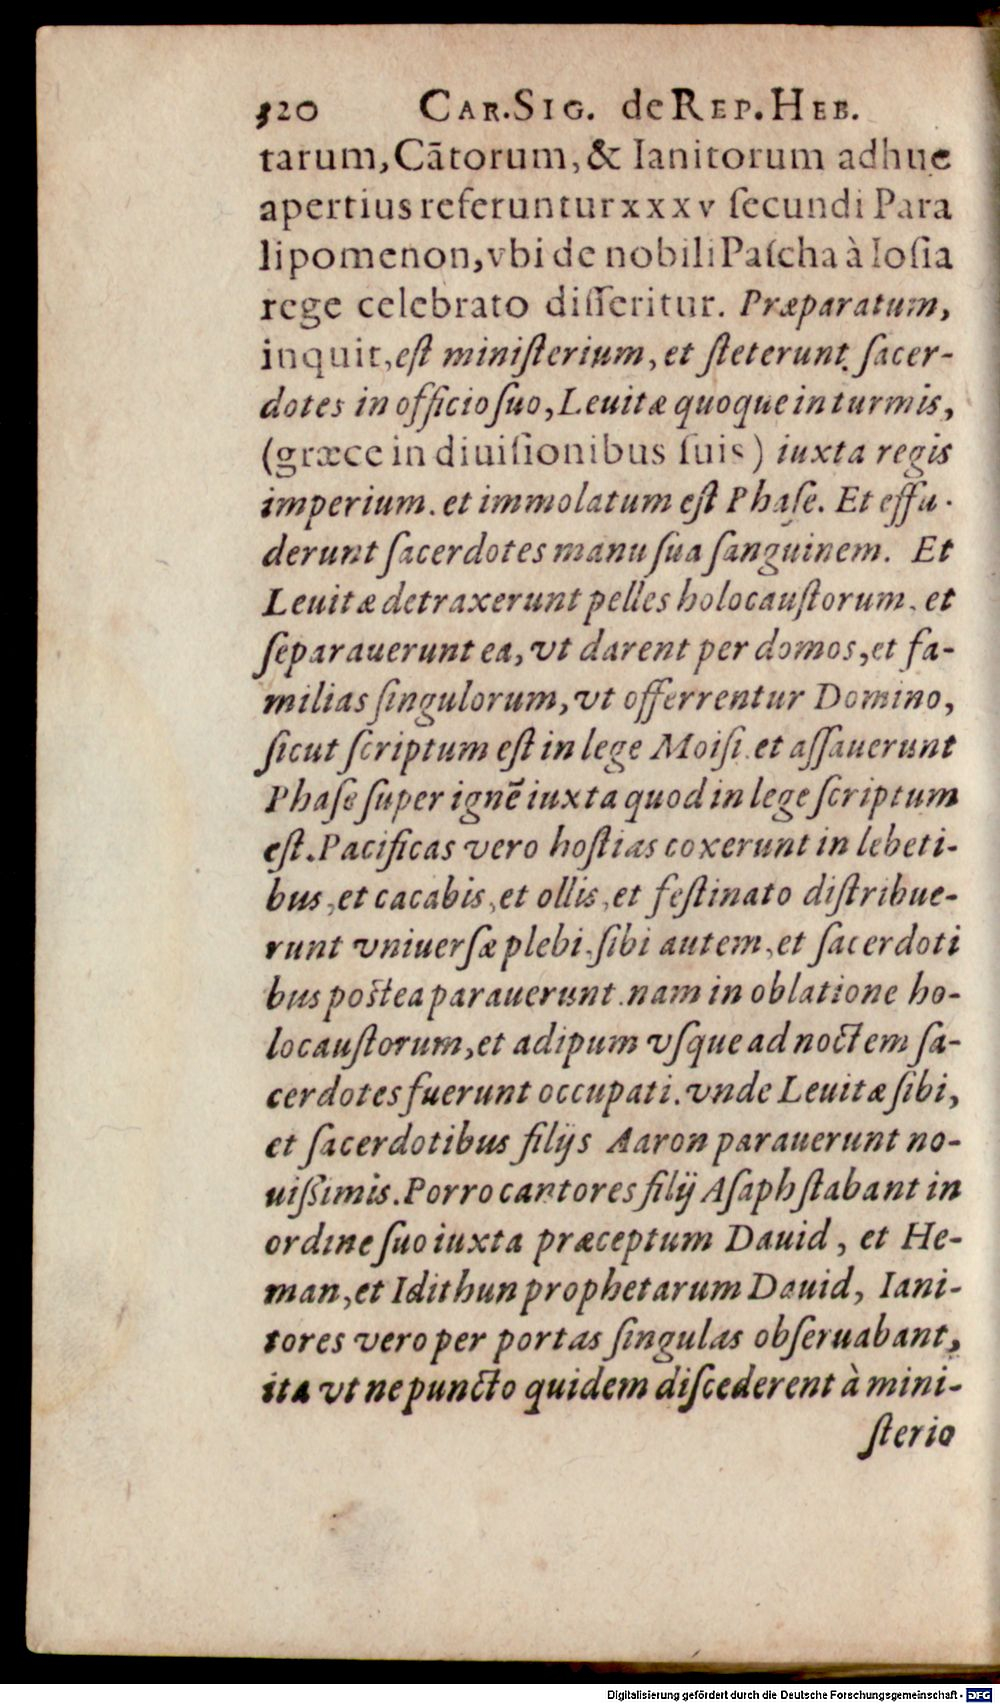 320 CAR. SIG. de REP. HEB.
tarum, Cātorum, & Ianitorum adhuc
apertius referuntur xxxv ſecundi Para
lipomenon, vbi de nobili Paſcha à Ioſia
rege celebrato diſſeritur. Præparatum,
inquit, eſt miniſterium, et ſteterunt ſacer-
dotes in officio ſuo, Leuitæ quoque in turmis,
(græce in diuiſionibus ſuis) iuxta regis
imperium. et immolatum eſt Phaſe. Et effu-
derunt ſacerdotes manu ſua ſanguinem. Et
Leuitæ detraxerunt pelles holocauſtorum, et
ſeparauerunt ea, vt darent per domos, et fa-
milias ſingulorum, vt offerrentur Domino,
ſicut ſcriptum eſt in lege Moiſi. et aſſauerunt
Phaſe ſuper ignē iuxta quod in lege ſcriptum
eſt. Pacificas vero hoſtias coxerunt in lebeti-
bus, et cacabis, et ollis, et feſtinato diſtribue-
runt vniuerſæ plebi, ſibi autem, et ſacerdoti
bus poſtea parauerunt. nam in oblatione ho-
locauſtorum, et adipum vſque ad noctem ſa-
cerdotes fuerunt occupati. vnde Leuitæ ſibi,
et ſacerdotibus filijs Aaron parauerunt no-
uißimis. Porro cantores filij Aſaph ſtabant in
ordine ſuo iuxta præceptum Dauid, et He-
man, et Idithun prophetarum Dauid, Iani-
tores vero per portas ſingulas obſeruabant,
ita vt ne puncto quidem diſcederent à mini-
ſterio
Digitalisierung gefördert durch die Deutsche Forschungsgemeinschaft - DFG